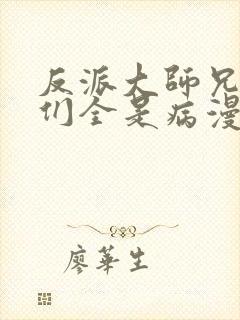 反派大師兄
们全是病漫
廖華生